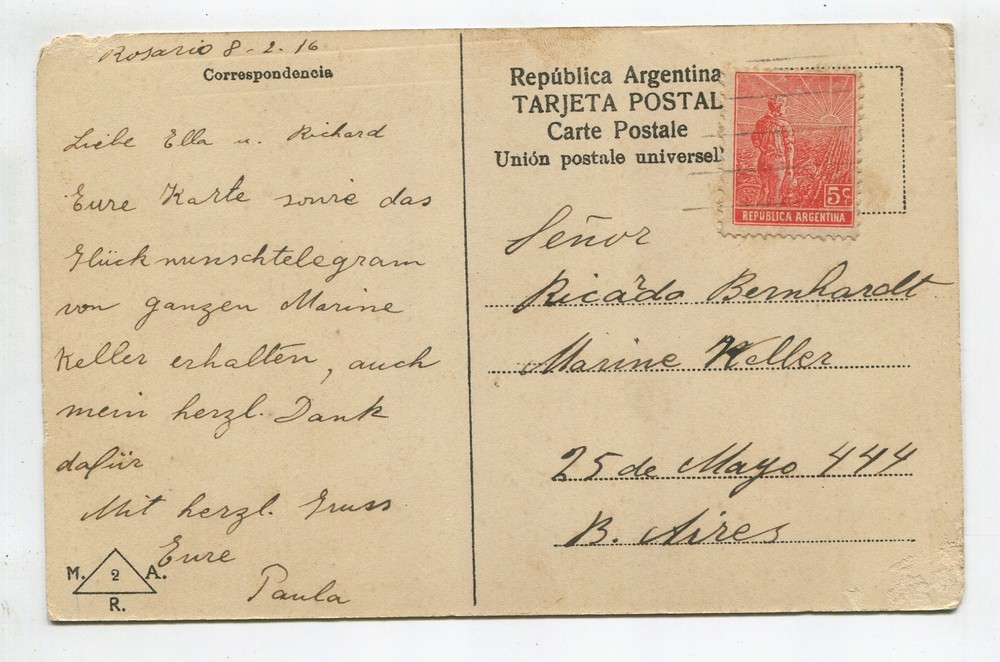 Rosario 8-2.16
Correspondencia
Liebe Ella u. Richard
Eure Karte sowie das
Glückwunschtelegram
von ganzen Marine
Keller erhalten, auch
mein herzl. Dank
dafür
Mit herzl. Gruss
Eure
Paula
M. 2 A.
R.
República Argentina
TARJETA POSTAL
Carte Postale
Unión postale universel
5c
REPUBLICA ARGENTINA
Señor
Ricardo Bernhardt
Marine Keller
25 de Mayo 444
B. Aires